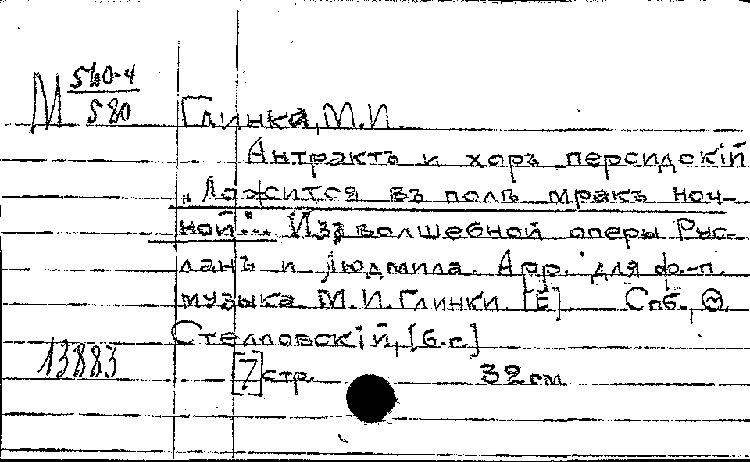 М 560-4
580
Глинка, М.И.
Антрактъ и хоръ персидскій
„Ложится въ полѣ мракъ ноч-
ной"... Изъ волшебной оперы Рус-
ланъ и Людмила. Арр. для ф.-п.
музыка М.И. Глинки [Е] Спб., Ѳ.
Стелловскій, [б.г.]
13883
[7] стр. 32 см.